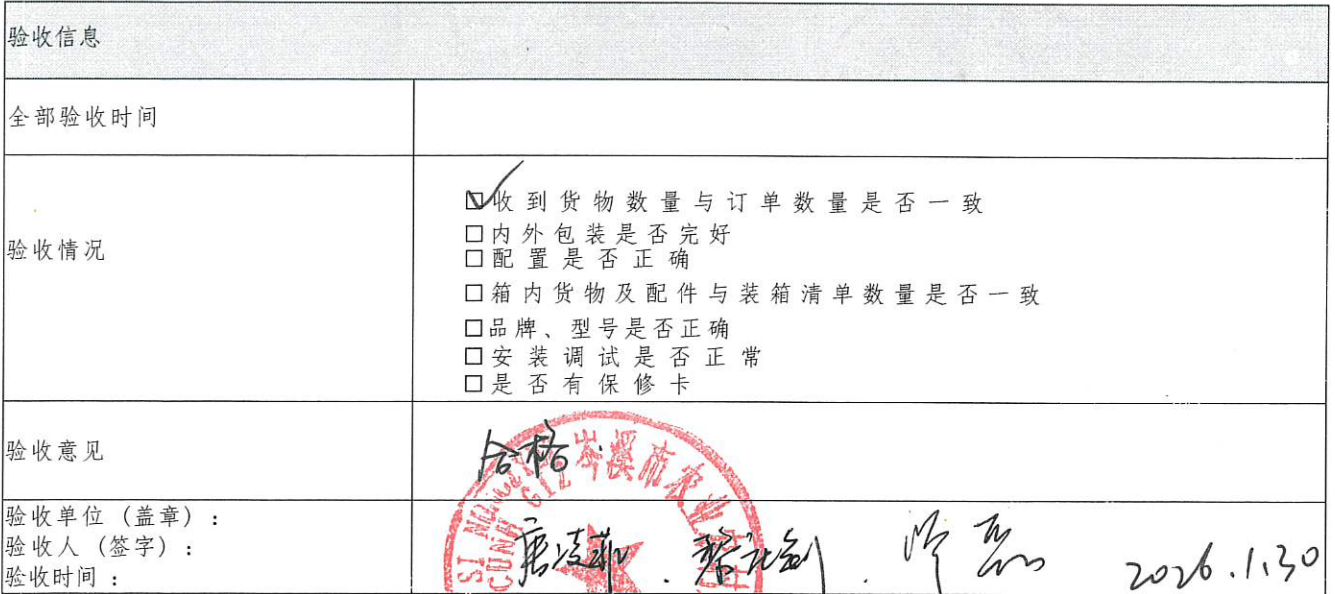 验收信息
全部验收时间
验收情况
☑收到货物数量与订单数量是否一致
□内外包装是否完好
□配置是否正确
□箱内货物及配件与装箱清单数量是否一致
□品牌、型号是否正确
□安装调试是否正常
□是否有保修卡
验收意见
合格.
岑溪市农业
验收单位 (盖章) :
验收人 (签字) :
验收时间 :
2026.1.30